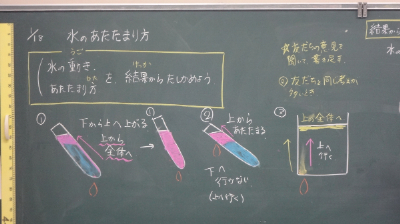 1/18 水のあたたまり方
うご
水の動き、
あたたまり方
を、結果からたしかめよう
けっか
☆友だちの意見を
聞いて、書き足す。
②友だちと同じ考え
結果から
①
下から上へ上がる
上から
全体へ
②
上から
あたたまる
下へ
行かない
③
上→全体へ
上へ
行く